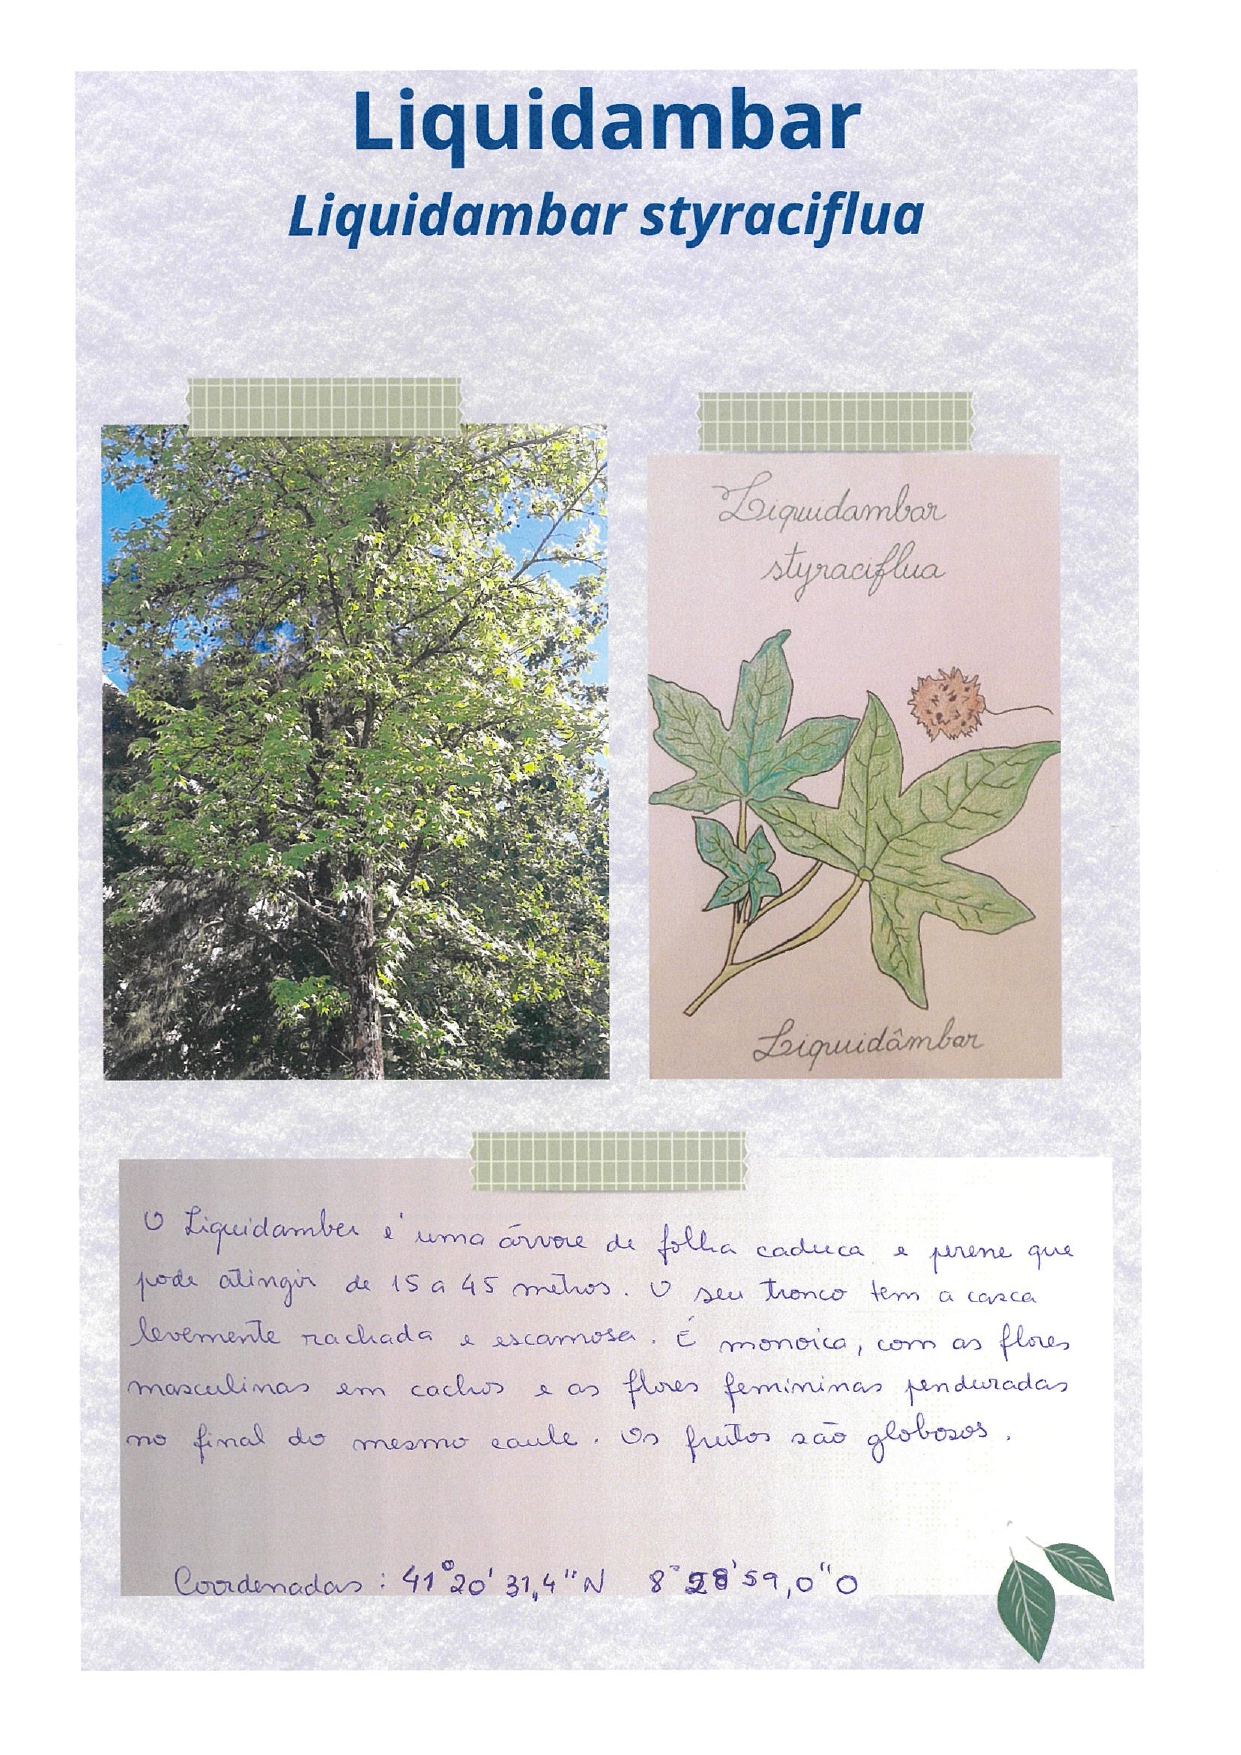 Liquidambar
Liquidambar styraciflua
Liquidambar
styraciflua
Liquidâmbar
O Liquidamber é uma árvore de folha caduca e perene que
pode atingir de 15 a 45 metros. O seu tronco tem a casca
levemente rachada e escamosa. É monoica, com as flores
masculinas em cachos e as flores femininas penduradas
no final do mesmo caule. Os frutos são globosos.
Coordenadas: 41°20'31,4"N 8°28'59,0"O